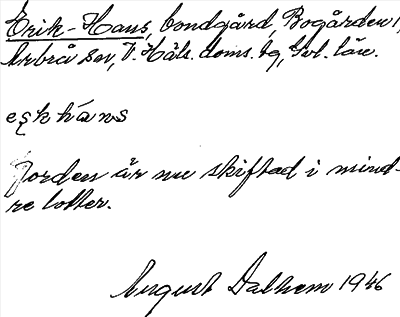 Erik-Hans, bondgård, Bogården 1,
Arbrå sn, V. Häls. doms. bg, Gvl. län.
eskhàns
Jorden är nu skiftad i mind-
re lotter.
August Dalhem 1946